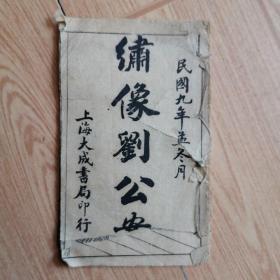 民國九年孟冬月
繡像劉公案
上海大成書局印行